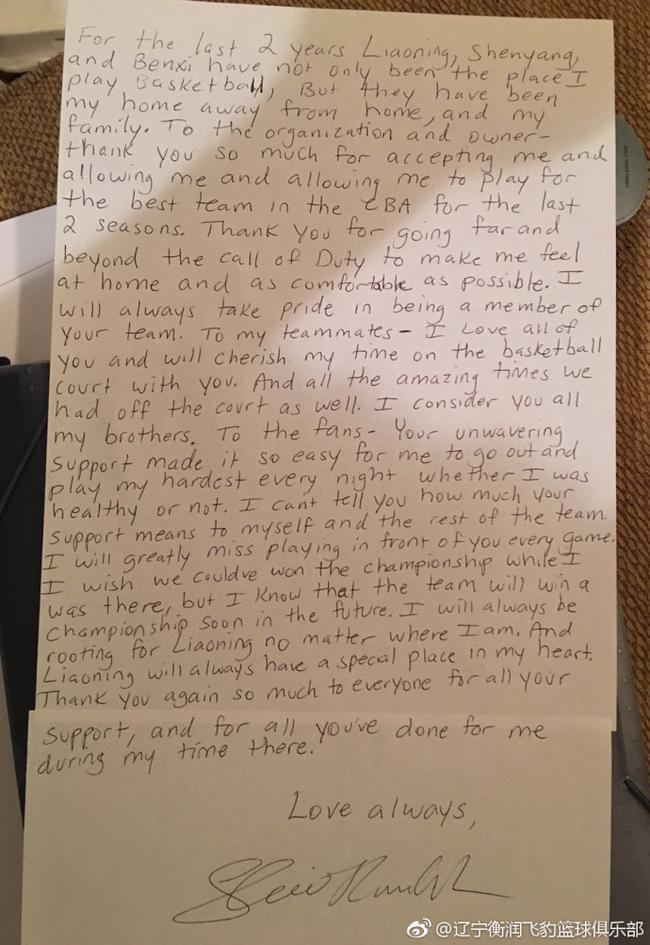 For the last 2 years Liaoning, Shenyang,
and Benxi have not only been the place I
play Basketball, But they have been
my home away from home, and my
family. To the organization and owner-
thank you so much for accepting me and
allowing me and allowing me to play for
the best team in the CBA for the last
2 seasons. Thank you for going far and
beyond the call of Duty to make me feel
at home and as comfortable as possible. I
will always take pride in being a member of
your team. To my teammates- I Love all of
you and will cherish my time on the basketball
court with you. And all the amazing times we
had off the court as well. I consider you all
my brothers. To the fans- Your unwavering
support made it so easy for me to go out and
play my hardest every night whether I was
healthy or not. I cant tell you how much your
support means to myself and the rest of the team.
I will greatly miss playing in front of you every game.
I wish we couldve won the championship while I
was there, but I know that the team will win a
championship soon in the future. I will always be
rooting for Liaoning no matter where I am. And
Liaoning will always have a special place in my heart.
Thank you again so much to everyone for all your
support, and for all you've done for me
during my time there.
Love always,
@辽宁衡润飞豹篮球俱乐部